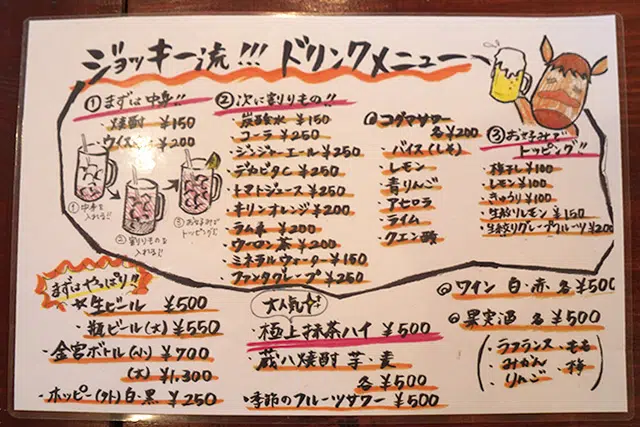 ジョッキー流!!! ドリンクメニュー
① まずは中身!!
・焼酎 ¥150
・ウイスキー ¥200
①中身を入れる!!
②割りものを入れる!!
③おこのみでトッピング!
② 次に割りもの!!
・炭酸水 ¥150
・コーラ ¥250
・ジンジャーエール ¥250
・デカビタC ¥250
・トマトジュース ¥250
・キリンオレンジ ¥200
・ラムネ ¥200
・ウーロン茶 ¥200
・ミネラルウォーター ¥150
・ファンタグレープ ¥250
◎コダマサワー
各¥200
・バイス(しそ)
・レモン
・青りんご
・アセロラ
・ライム
・クエン酸
③おこのみで
トッピング!!
・梅干し ¥100
・レモン ¥100
・きゅうり ¥100
・生絞りレモン ¥150
・生絞りグレープフルーツ ¥200
まずはやっぱり!!
・生ビール ¥500
・瓶ビール(大) ¥550
・金宮ボトル(小) ¥700
(大) ¥1,300
・ホッピー(外)白・黒 ¥250
大人気
・極上抹茶ハイ ¥500
・蔵八焼酎 芋・麦
各 ¥500
・季節のフルーツサワー ¥500
◎ワイン 白・赤 各¥500
◎果実酒 各¥500
・ラフランス ・もも
・みかん ・梅
・りんご